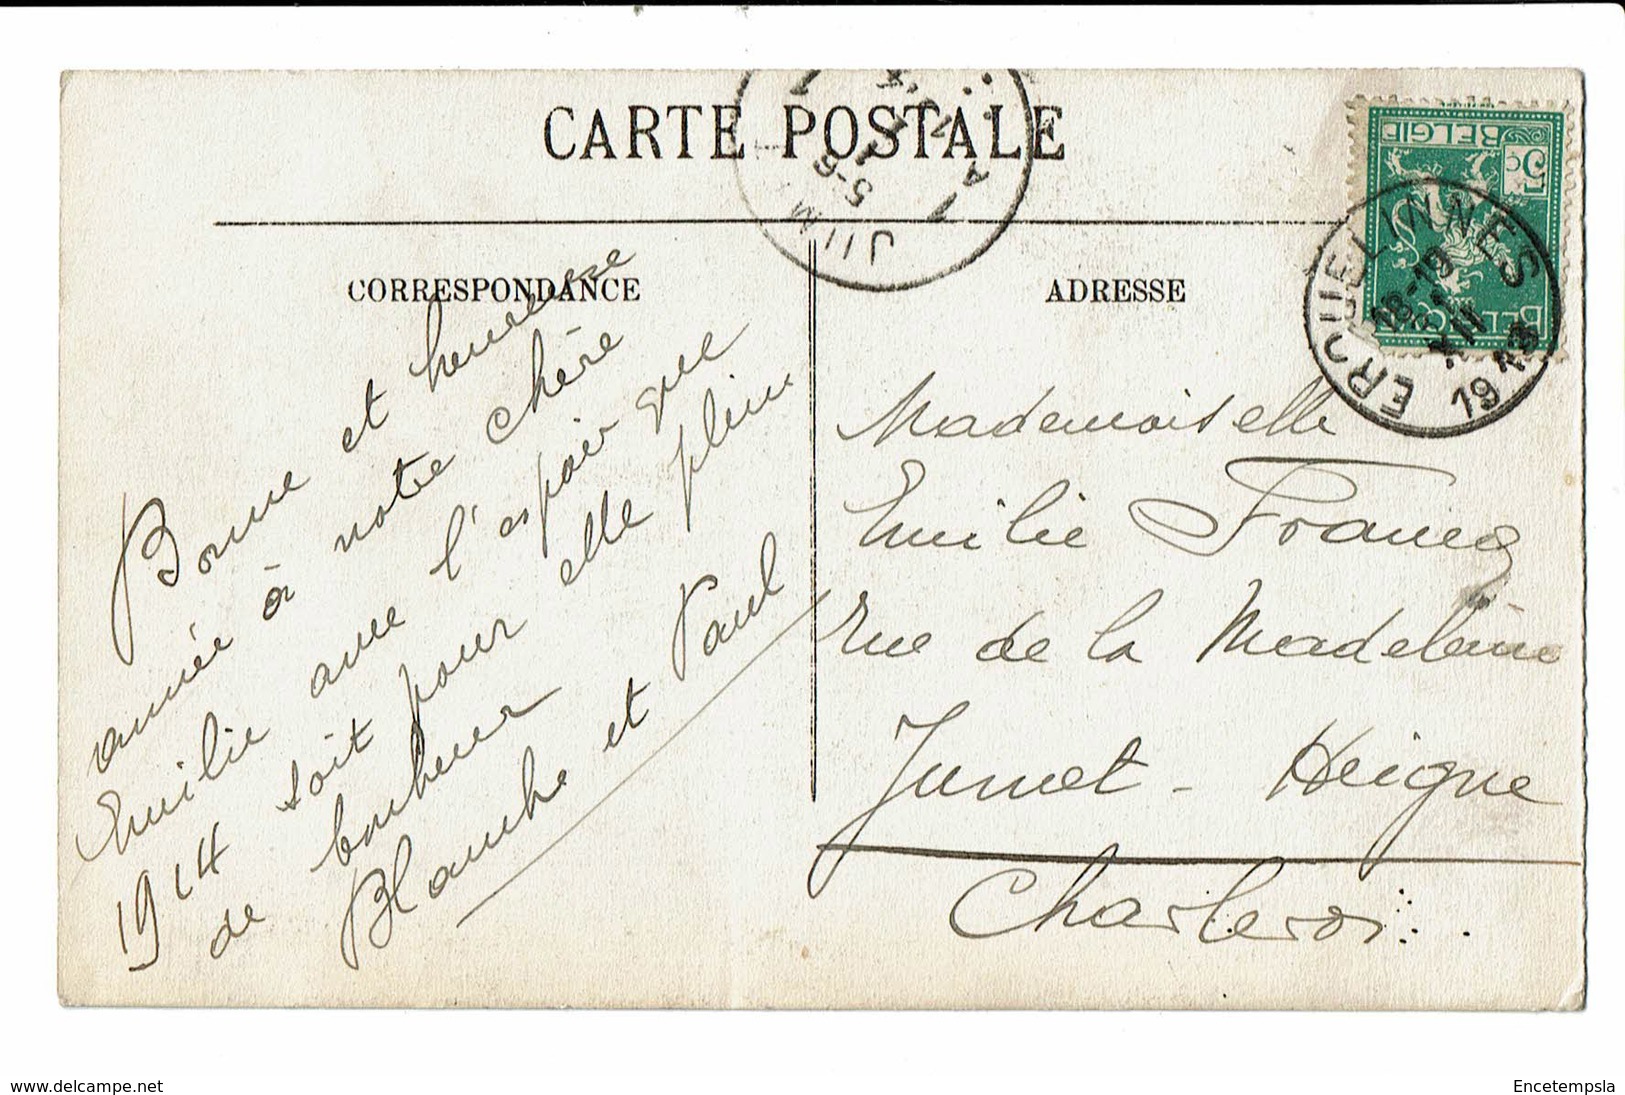 CARTE POSTALE
CORRESPONDANCE
Bonne et heureuse
année à notre chère
Emilie avec l'espoir que
1914 soit pour elle plein
de bonheur
Blanche et Paul
ADRESSE
Mademoiselle
Emilie Francq
Rue de la Madeleine
Jumet - Heigne
Charleroi
BELGIE
5c
BELGIQUE
ERQUELINNES
18-19
XII
1913
5-6
www.delcampe.net
Encetempsla